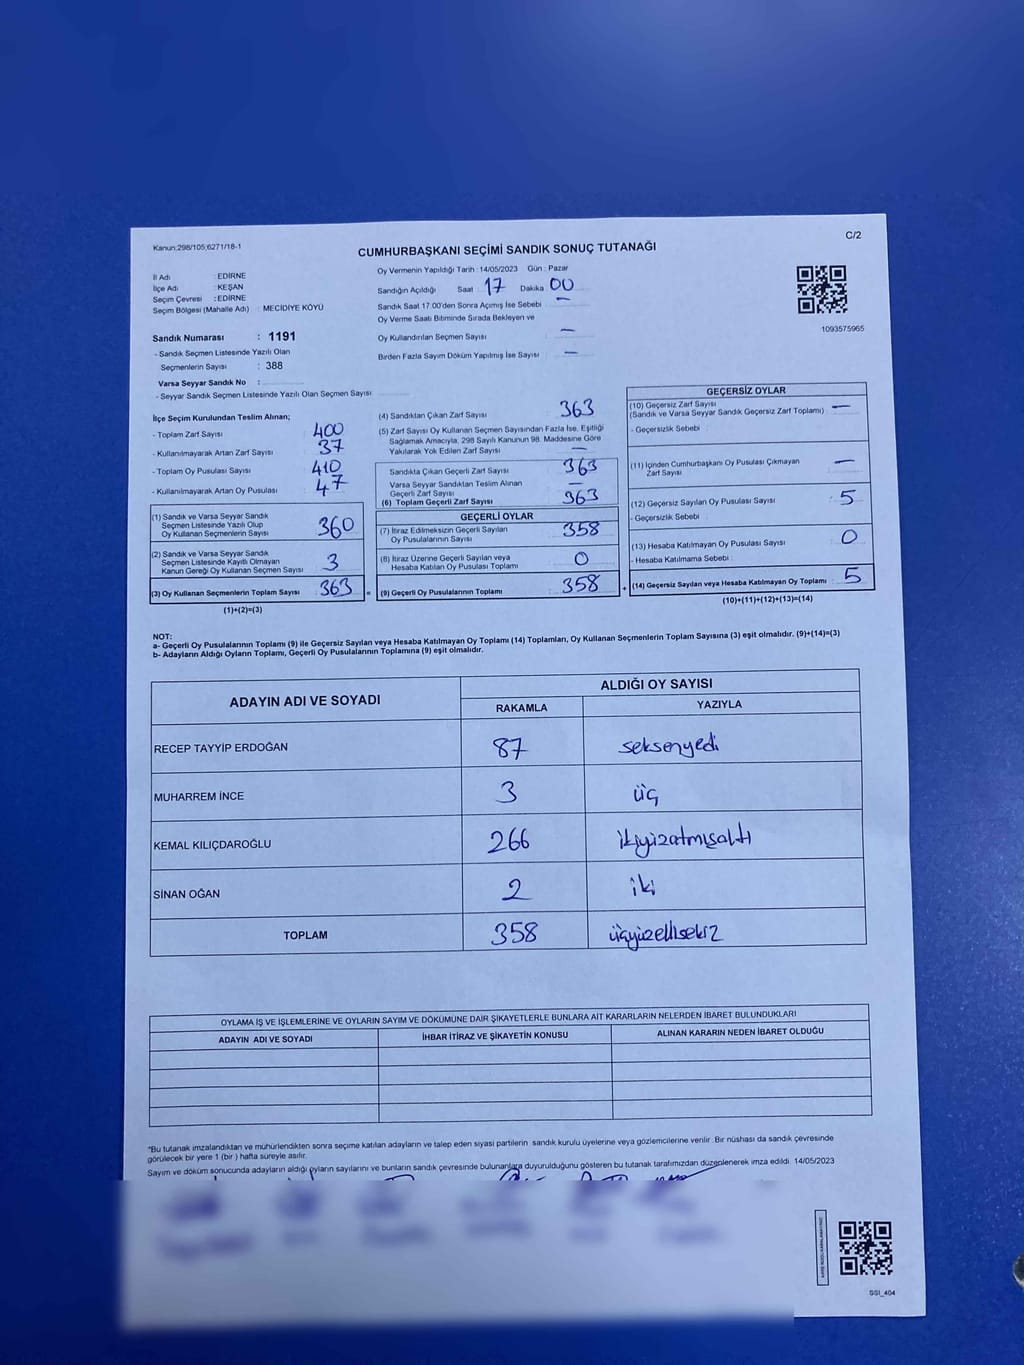 Kanun:298/105;6271/18-1
C/2
CUMHURBAŞKANI SEÇİMİ SANDIK SONUÇ TUTANAĞI
İl Adı : EDİRNE
İlçe Adı : KEŞAN
Seçim Çevresi : EDİRNE
Seçim Bölgesi (Mahalle Adı) : MECİDİYE KÖYÜ
Oy Vermenin Yapıldığı Tarih : 14/05/2023 Gün : Pazar
Sandığın Açıldığı Saat : 17 Dakika : 00
Sandık Saat 17.00'den Sonra Açımış İse Sebebi : —
Oy Verme Saati Bitiminde Sırada Bekleyen ve
Oy Kullandırılan Seçmen Sayısı : —
Birden Fazla Sayım Döküm Yapılmış İse Sayısı : —
1093575965
Sandık Numarası : 1191
- Sandık Seçmen Listesinde Yazılı Olan
Seçmenlerin Sayısı : 388
Varsa Seyyar Sandık No :
- Seyyar Sandık Seçmen Listesinde Yazılı Olan Seçmen Sayısı :
İlçe Seçim Kurulundan Teslim Alınan;
- Toplam Zarf Sayısı : 400
- Kullanılmayarak Artan Zarf Sayısı : 37
- Toplam Oy Pusulası Sayısı : 410
- Kullanılmayarak Artan Oy Pusulası : 47
(1) Sandık ve Varsa Seyyar Sandık
Seçmen Listesinde Yazılı Olup
Oy Kullanan Seçmenlerin Sayısı 360
(2) Sandık ve Varsa Seyyar Sandık
Seçmen Listesinde Kayıtlı Olmayan
Kanun Gereği Oy Kullanan Seçmen Sayısı 3
(3) Oy Kullanan Seçmenlerin Toplam Sayısı 363 =
(1)+(2)=(3)
(4) Sandıktan Çıkan Zarf Sayısı : 363
(5) Zarf Sayısı Oy Kullanan Seçmen Sayısından Fazla İse, Eşitliği
Sağlamak Amacıyla, 298 Sayılı Kanunun 98. Maddesine Göre
Yakılarak Yok Edilen Zarf Sayısı : —
Sandıkta Çıkan Geçerli Zarf Sayısı : 363
Varsa Seyyar Sandıktan Teslim Alınan
Geçerli Zarf Sayısı : —
(6) Toplam Geçerli Zarf Sayısı : 363
GEÇERLİ OYLAR
(7) İtiraz Edilmeksizin Geçerli Sayılan
Oy Pusulalarının Sayısı : 358
(8) İtiraz Üzerine Geçerli Sayılan veya
Hesaba Katılan Oy Pusulası Toplamı : 0
(9) Geçerli Oy Pusulalarının Toplamı : 358 +
GEÇERSİZ OYLAR
(10) Geçersiz Zarf Sayısı
(Sandık ve Varsa Seyyar Sandık Geçersiz Zarf Toplamı) : —
- Geçersizlik Sebebi :
(11) İçinden Cumhurbaşkanı Oy Pusulası Çıkmayan
Zarf Sayısı : —
(12) Geçersiz Sayılan Oy Pusulası Sayısı : 5
- Geçersizlik Sebebi :
(13) Hesaba Katılmayan Oy Pusulası Sayısı : 0
- Hesaba Katılmama Sebebi :
(14) Geçersiz Sayılan veya Hesaba Katılmayan Oy Toplamı : 5
(10)+(11)+(12)+(13)=(14)
NOT:
a- Geçerli Oy Pusulalarının Toplamı (9) ile Geçersiz Sayılan veya Hesaba Katılmayan Oy Toplamı (14) Toplamları, Oy Kullanan Seçmenlerin Toplam Sayısına (3) eşit olmalıdır. (9)+(14)=(3)
b- Adayların Aldığı Oyların Toplamı, Geçerli Oy Pusulalarının Toplamına (9) eşit olmalıdır.
ADAYIN ADI VE SOYADI ALDIĞI OY SAYISI
RAKAMLA YAZIYLA
RECEP TAYYİP ERDOĞAN 87 seksenyedi
MUHARREM İNCE 3 üç
KEMAL KILIÇDAROĞLU 266 ikiyüzatmışaltı
SİNAN OĞAN 2 iki
TOPLAM 358 üçyüzellisekiz
OYLAMA İŞ VE İŞLEMLERİNE VE OYLARIN SAYIM VE DÖKÜMÜNE DAİR ŞİKAYETLERLE BUNLARA AİT KARARLARIN NELERDEN İBARET BULUNDUKLARI
ADAYIN ADI VE SOYADI İHBAR İTİRAZ VE ŞİKAYETİN KONUSU ALINAN KARARIN NEDEN İBARET OLDUĞU
*Bu tutanak imzalandıktan ve mühürlendikten sonra seçime katılan adayların ve talep eden siyasi partilerin sandık kurulu üyelerine veya gözlemcilerine verilir. Bir nüshası da sandık çevresinde
görülecek bir yere 1 (bir ) hafta süreyle asılır.
Sayım ve döküm sonucunda adayların aldığı oyların sayılarını ve bunların sandık çevresinde bulunanlara duyurulduğunu gösteren bu tutanak tarafımızdan düzenlenerek imza edildi. 14/05/2023
SSI_404